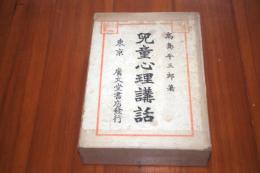 高島平三郎著
兒童心理講話
東京 廣文堂書店發行